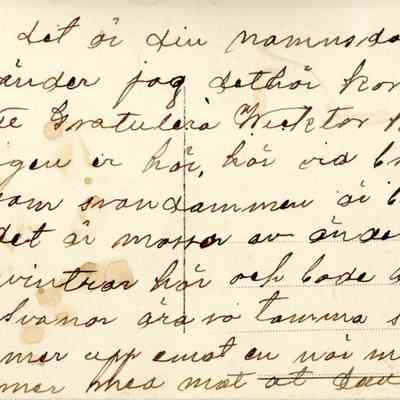 det är din namnsda
änder jag dethär kor
te Gratulera Wicktor
igen er här, här vid b
som svandammen är b
det är massor av ände
vintrar här och bode
Svanor ära så tamma s
mer upp emot en när m
mer med mat at